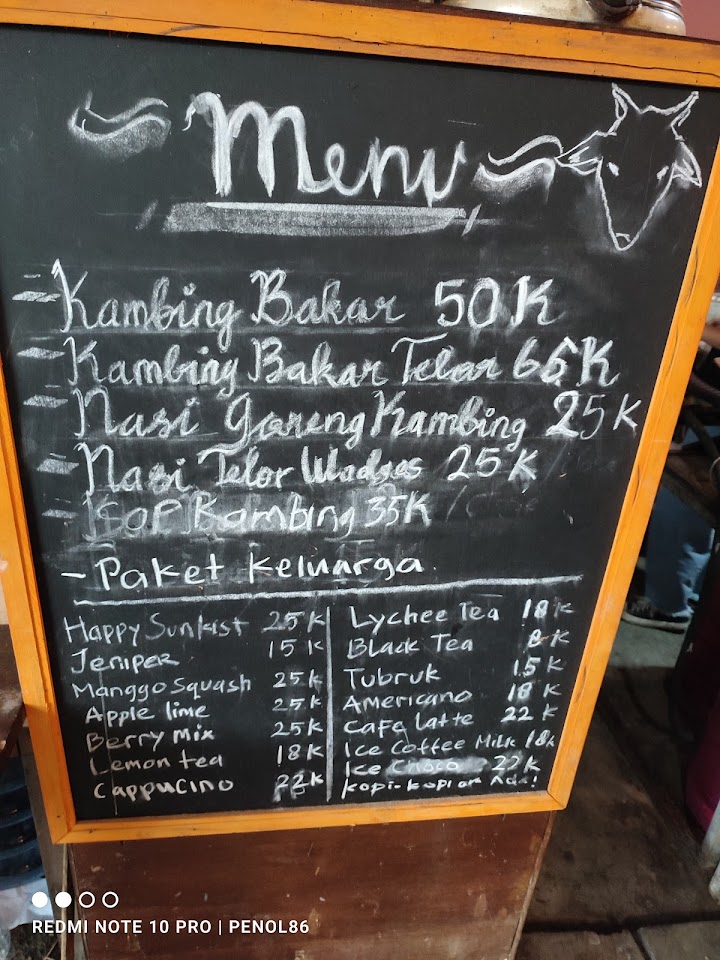 Menu
Kambing Bakar 50K
Kambing Bakar Telar 65K
Nasi Goreng Kambing 25K
Nasi Telor Wadges 25K
SOP Kambing 35K
- Paket Keluarga
Happy Sunkist 25K
Jeniper 15K
Manggo Squash 25K
Apple lime 25K
Berry Mix 25K
Lemon tea 18K
Cappucino 22K
Lychee Tea 18K
Black Tea 8K
Tubruk 15K
Americano 18K
Cafe latte 22K
Ice Coffee Milk 18k
Ice Choco 22K
kopi-kopian Ada!
REDMI NOTE 10 PRO | PENOL86